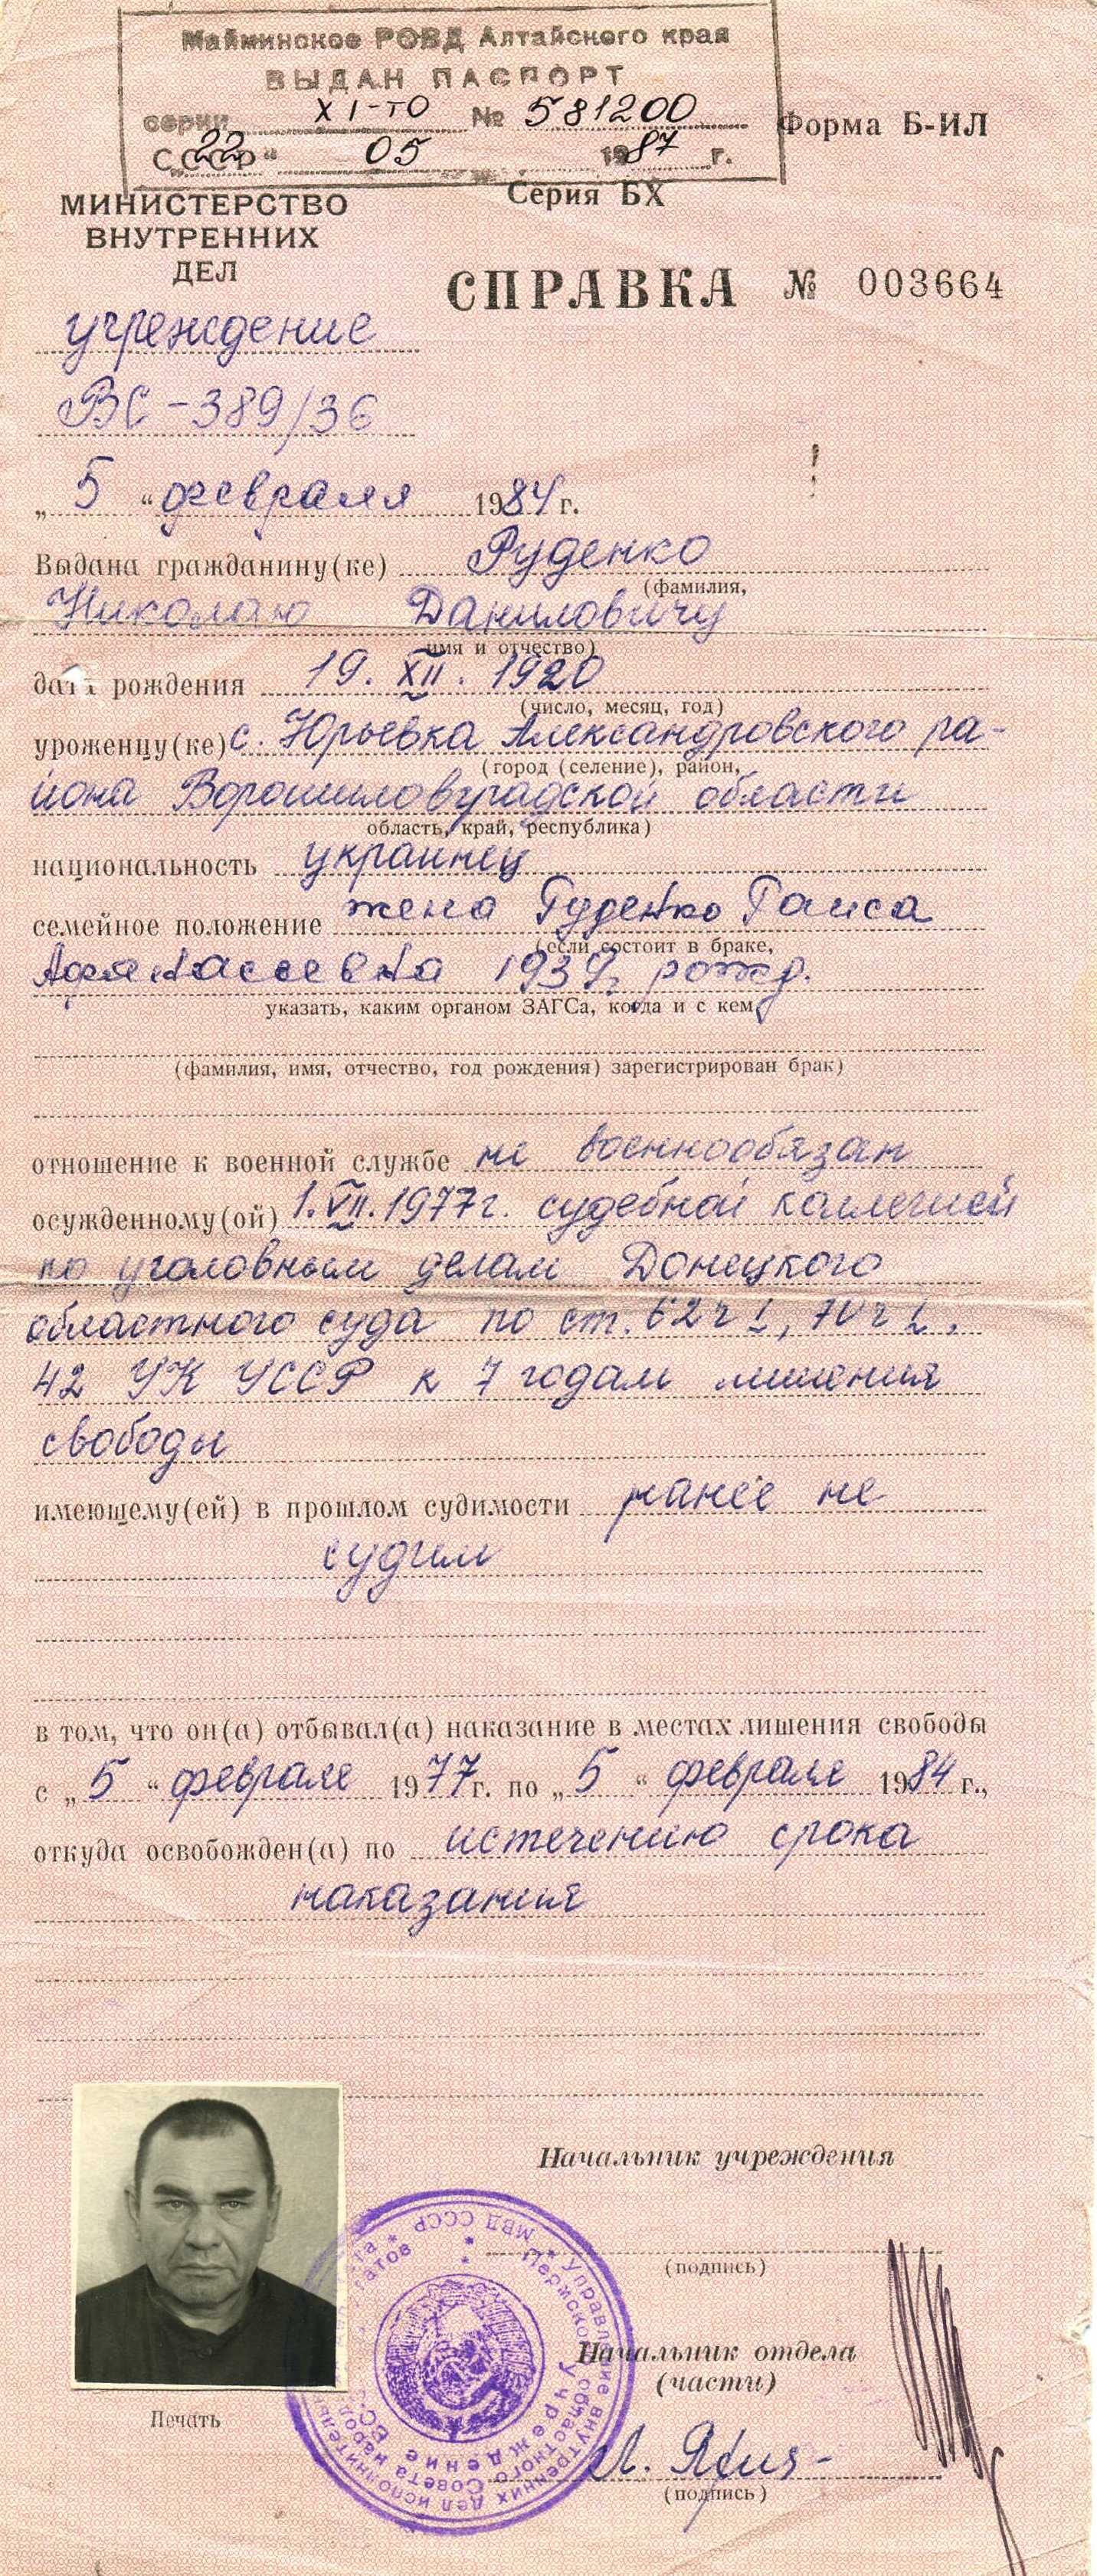 Майминское РОВД Алтайского края
ВЫДАН ПАСПОРТ
серии XI-ТО № 581200
СССР „22“ 05 1987 г.
Форма Б-ИЛ
Серия БХ
МИНИСТЕРСТВО
ВНУТРЕННИХ
ДЕЛ
СПРАВКА № 003664
учреждение
ВС-389/36
„ 5 “ февраля 1984 г.
Выдана гражданину(ке) Руденко
(фамилия,
Николаю Даниловичу
имя и отчество)
дата рождения 19. XII. 1920
(число, месяц, год)
уроженцу(ке) с. Юрьевка Александровского ра-
(город (селение), район,
йона Ворошиловградской области
область, край, республика)
национальность украинец
семейное положение жена Руденко Раиса
(если состоит в браке,
Афанасьевна 1939г. рожд.
указать, каким органом ЗАГСа, когда и с кем
(фамилия, имя, отчество, год рождения) зарегистрирован брак)
отношение к военной службе не военнообязан
осужденному(ой) 1.VII.1977г. судебной коллегией
по уголовным делам Донецкого
областного суда по ст. 62 ч I, 70 ч I,
42 УК УССР к 7 годам лишения
свободы
имеющему(ей) в прошлом судимости ранее не
судим
в том, что он(а) отбывал(а) наказание в местах лишения свободы
с „ 5 “ февраля 1977 г. по „ 5 “ февраля 1984 г.,
откуда освобожден(а) по истечению срока
наказания
Начальник учреждения
(подпись)
Начальник отдела
(части)
Печать
(подпись)
МВД СССР * Управление внутренних дел исполнительн
Пермского областного Совета народ
Учреждение ВС-